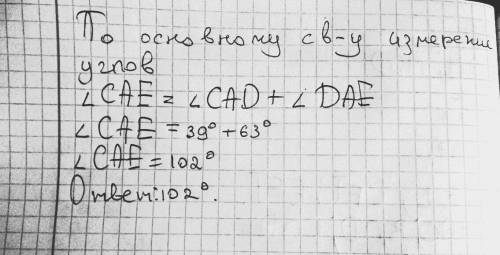 По основному св-у измерени
углов
∠CAE = ∠CAD + ∠DAE
∠CAE = 39° + 63°
∠CAE = 102°
Ответ: 102°.